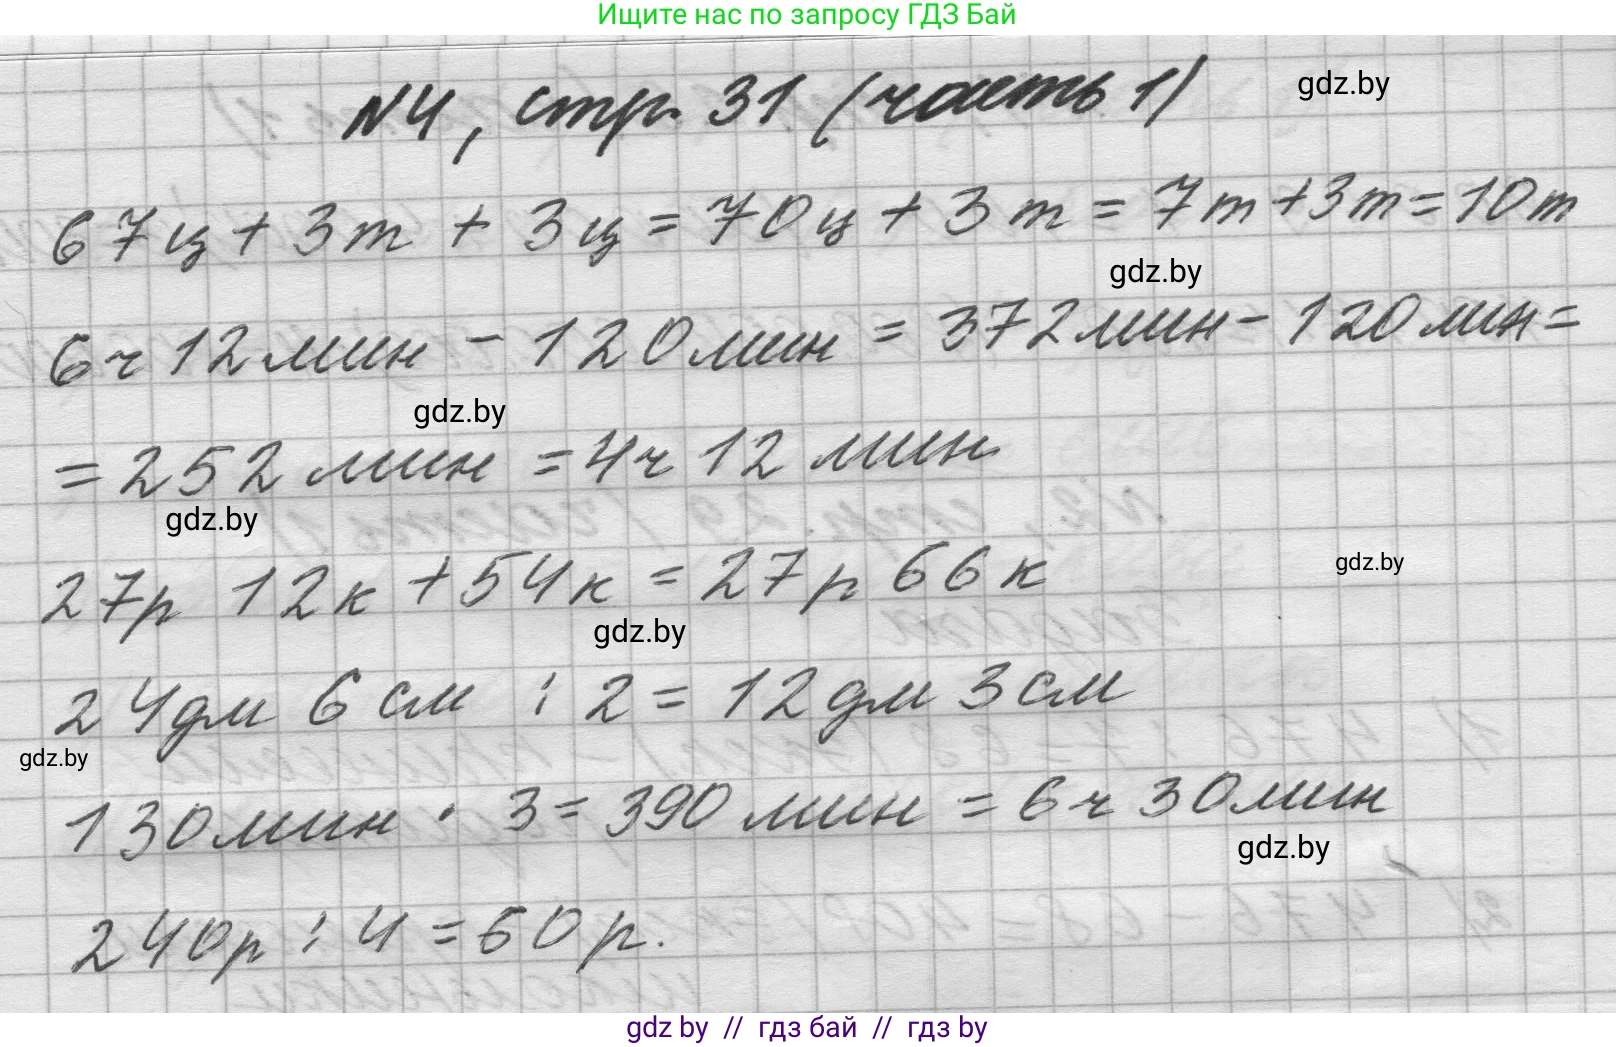 Ищите нас по запросу ГДЗ Бай
N4, стр. 31 (часть 1)
gdz.by
67ц + 3т + 3ц = 70ц + 3т = 7т + 3т = 10т
gdz.by
6ч 12мин - 120мин = 372мин - 120мин =
gdz.by
= 252 мин = 4ч 12 мин.
gdz.by
gdz.by
27р 12к + 54к = 27р 66к
gdz.by
24дм 6 см : 2 = 12дм 3см
gdz.by
130мин · 3 = 390 мин = 6ч 30мин
gdz.by
240р : 4 = 60р.
gdz by // гдз бай // гдз by